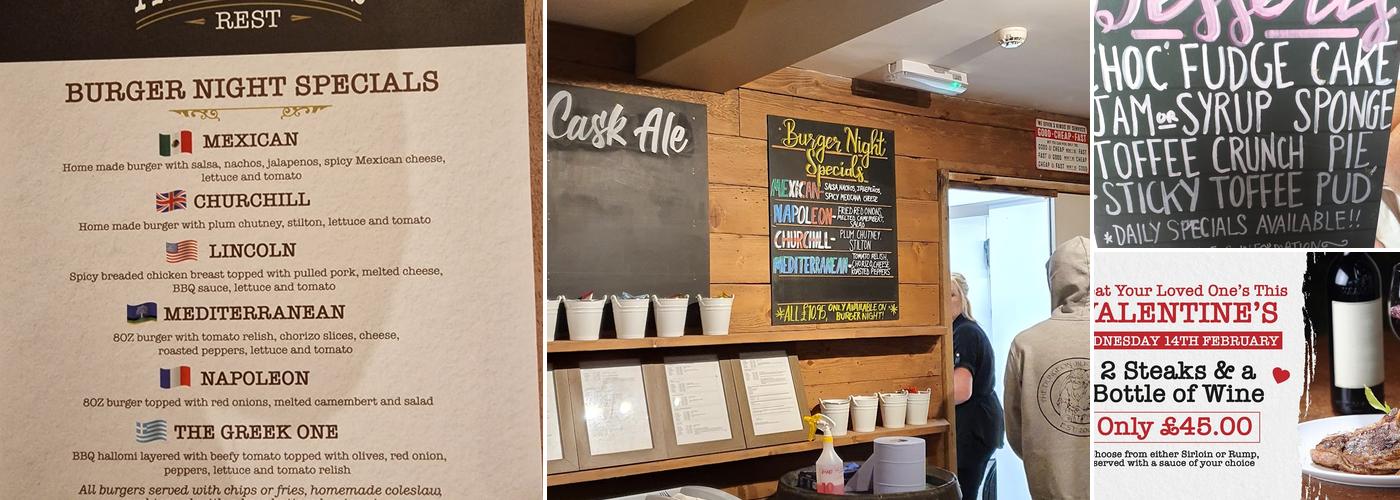 REST
BURGER NIGHT SPECIALS
MEXICAN
Home made burger with salsa, nachos, jalapenos, spicy Mexican cheese,
lettuce and tomato
CHURCHILL
Home made burger with plum chutney, stilton, lettuce and tomato
LINCOLN
Spicy breaded chicken breast topped with pulled pork, melted cheese,
BBQ sauce, lettuce and tomato
MEDITERRANEAN
8OZ burger with tomato relish, chorizo slices, cheese,
roasted peppers, lettuce and tomato
NAPOLEON
8OZ burger topped with red onions, melted camembert and salad
THE GREEK ONE
BBQ hallomi layered with beefy tomato topped with olives, red onion,
peppers, lettuce and tomato relish
All burgers served with chips or fries, homemade coleslaw,
Cask Ale
Burger Night
Specials
MEXICAN- SALSA, NACHOS, JALEPEÑOS,
SPICY MEXICANA CHEESE
NAPOLEON- FRIED RED ONIONS,
MELTED CAMEMBERT,
SALAD
CHURCHILL- PLUM CHUTNEY,
STILTON
MEDITERRANEAN- TOMATO RELISH,
CHORIZO, CHEESE,
ROASTED PEPPERS
*ALL £10.95 ONLY AVAILABLE ON
BURGER NIGHT!*
GOOD-CHEAP-FAST
Desserts
CHOC' FUDGE CAKE
JAM OR SYRUP SPONGE
TOFFEE CRUNCH PIE
STICKY TOFFEE PUD'
*DAILY SPECIALS AVAILABLE!!
eat Your Loved One's This
VALENTINE'S
DNESDAY 14TH FEBRUARY
2 Steaks & a
Bottle of Wine
Only £45.00
hoose from either Sirloin or Rump,
served with a sauce of your choice